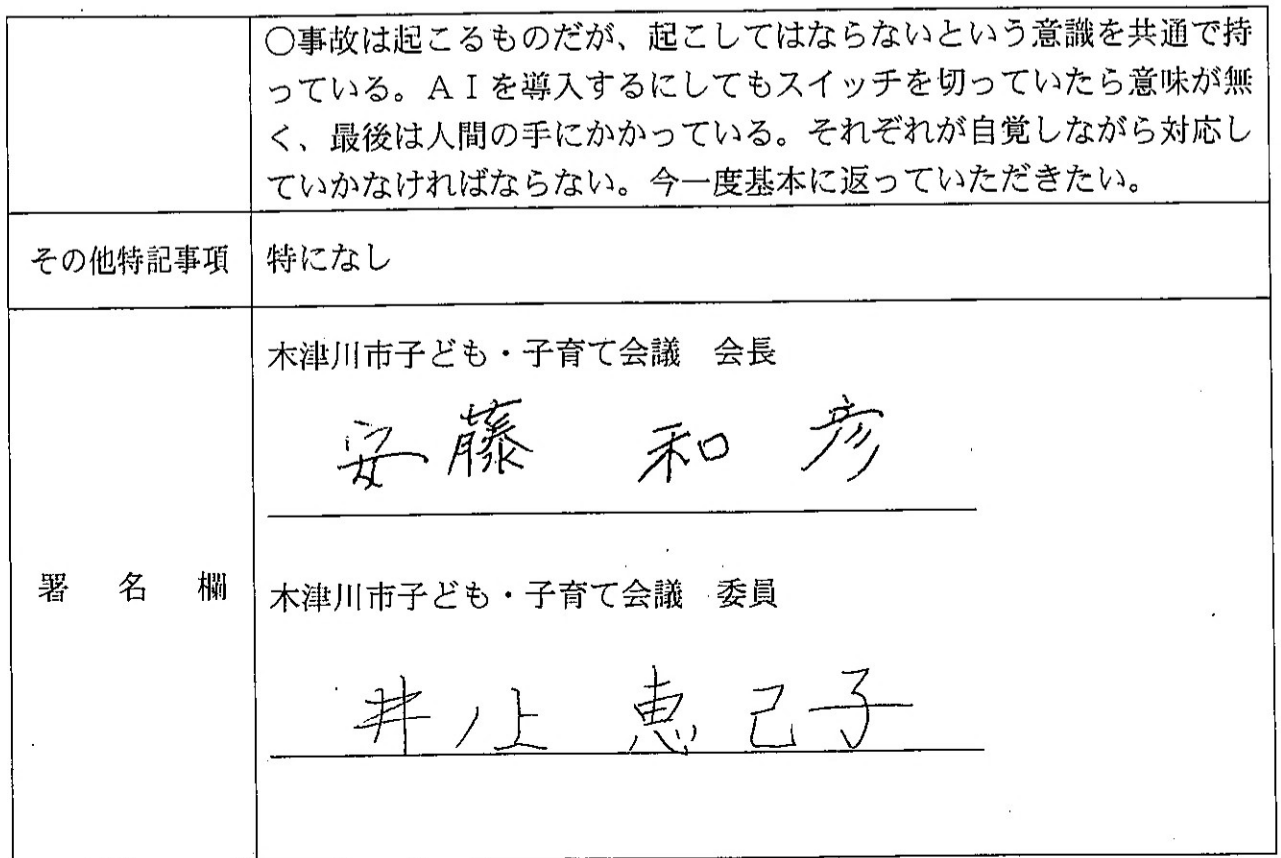 ○事故は起こるものだが、起こしてはならないという意識を共通で持
っている。AIを導入するにしてもスイッチを切っていたら意味が無
く、最後は人間の手にかかっている。それぞれが自覚しながら対応し
ていかなければならない。今一度基本に返っていただきたい。
その他特記事項 特になし
木津川市子ども・子育て会議 会長
安藤 和彦
署名欄
木津川市子ども・子育て会議 委員
井ノ上 恵己子